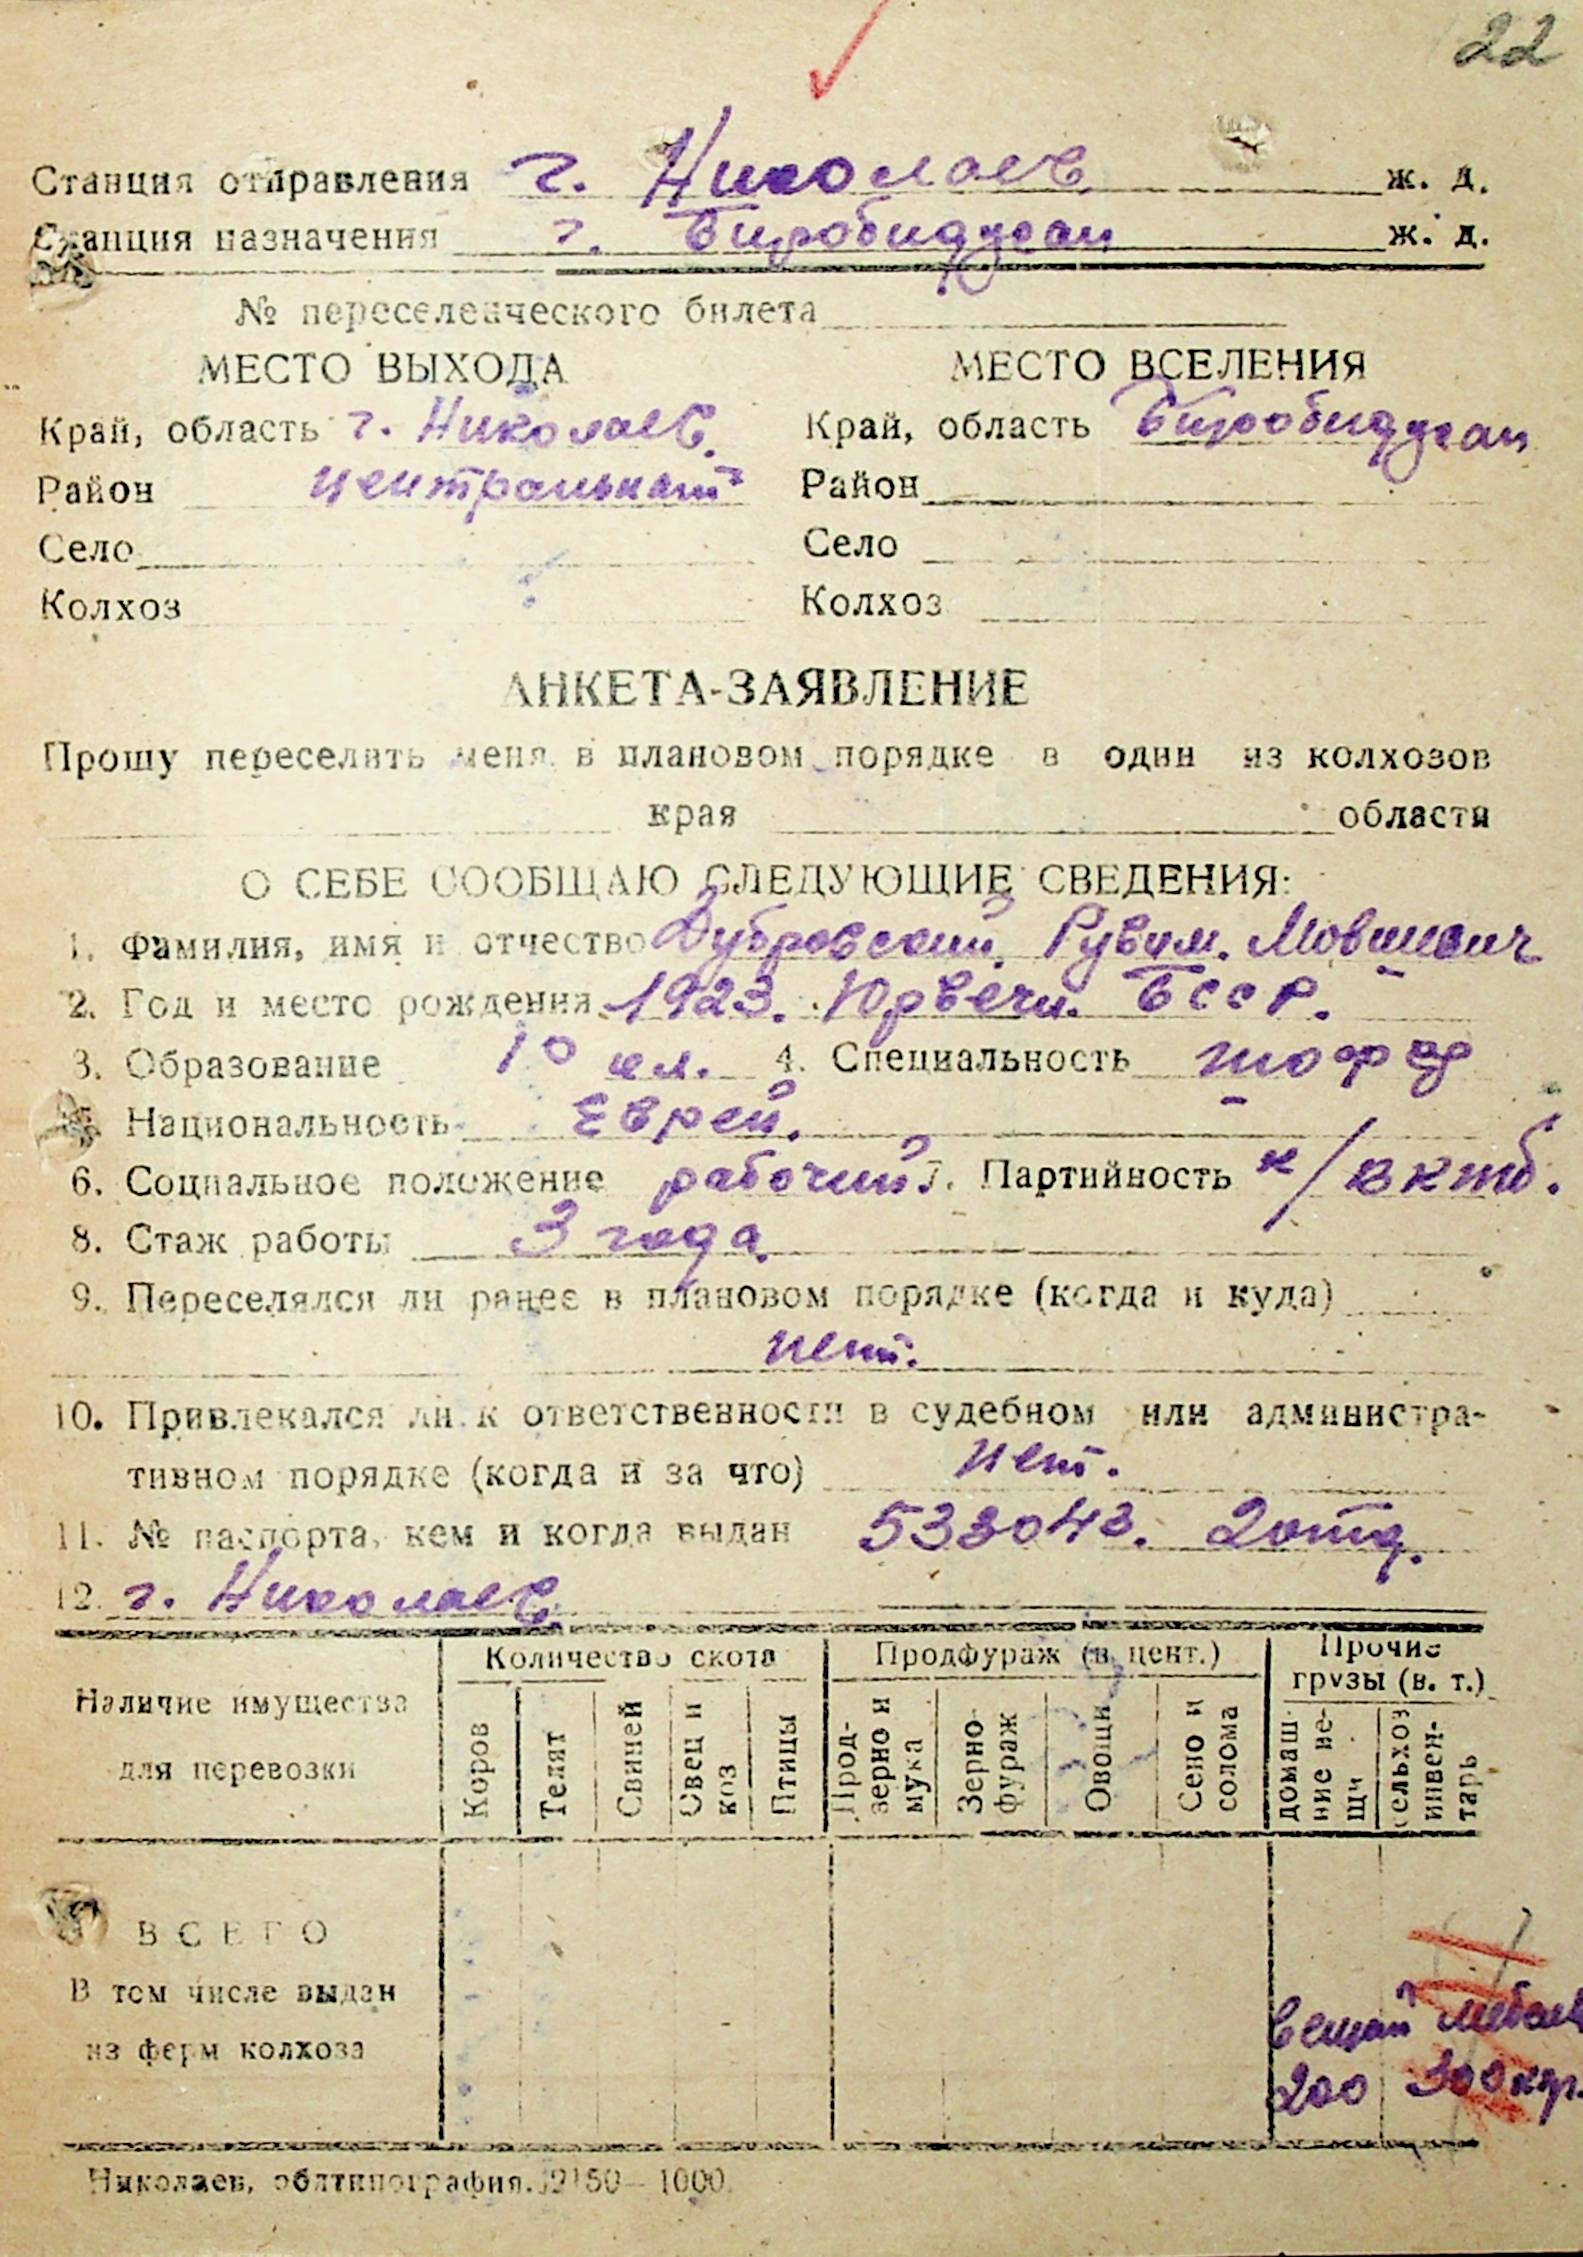 22
Станция отправления г. Николаев ж. д.
Станция назначения г. Биробиджан ж. д.
№ переселенческого билета
МЕСТО ВЫХОДА МЕСТО ВСЕЛЕНИЯ
Край, область г. Николаев. Край, область Биробиджан
Район центральный Район
Село Село
Колхоз Колхоз
АНКЕТА-ЗАЯВЛЕНИЕ
Прошу переселить меня в плановом порядке в один из колхозов
края области
О СЕБЕ СООБЩАЮ СЛЕДУЮЩИЕ СВЕДЕНИЯ:
1. Фамилия, имя и отчество Дубровский Рувим. Мовшевич
2. Год и место рождения 1923. БССР.
3. Образование 10 кл. 4. Специальность шофер
Национальность Еврей.
6. Социальное положение рабочий 7. Партийность к/ВКПб.
8. Стаж работы 3 года.
9. Переселялся ли ранее в плановом порядке (когда и куда)
нет.
10. Привлекался ли к ответственности в судебном или администра-
тивном порядке (когда и за что) нет.
11. № паспорта, кем и когда выдан 533043. 2 отд.
12. г. Николаев
Количество скота Продфураж (в цент.) Прочие
грузы (в. т.)
Наличие имущества
для перевозки
Коров Телят Свиней Овец и коз Птицы Прод-зерно и мука Зерно-фураж Овощи Сено и солома домаш-ние ве-щи сельхоз инвен-тарь
ВСЕГО
В том числе выдан
из ферм колхоза
вещей мебель
200 300 кгр.
Николаев, облтипография. 2150—1000